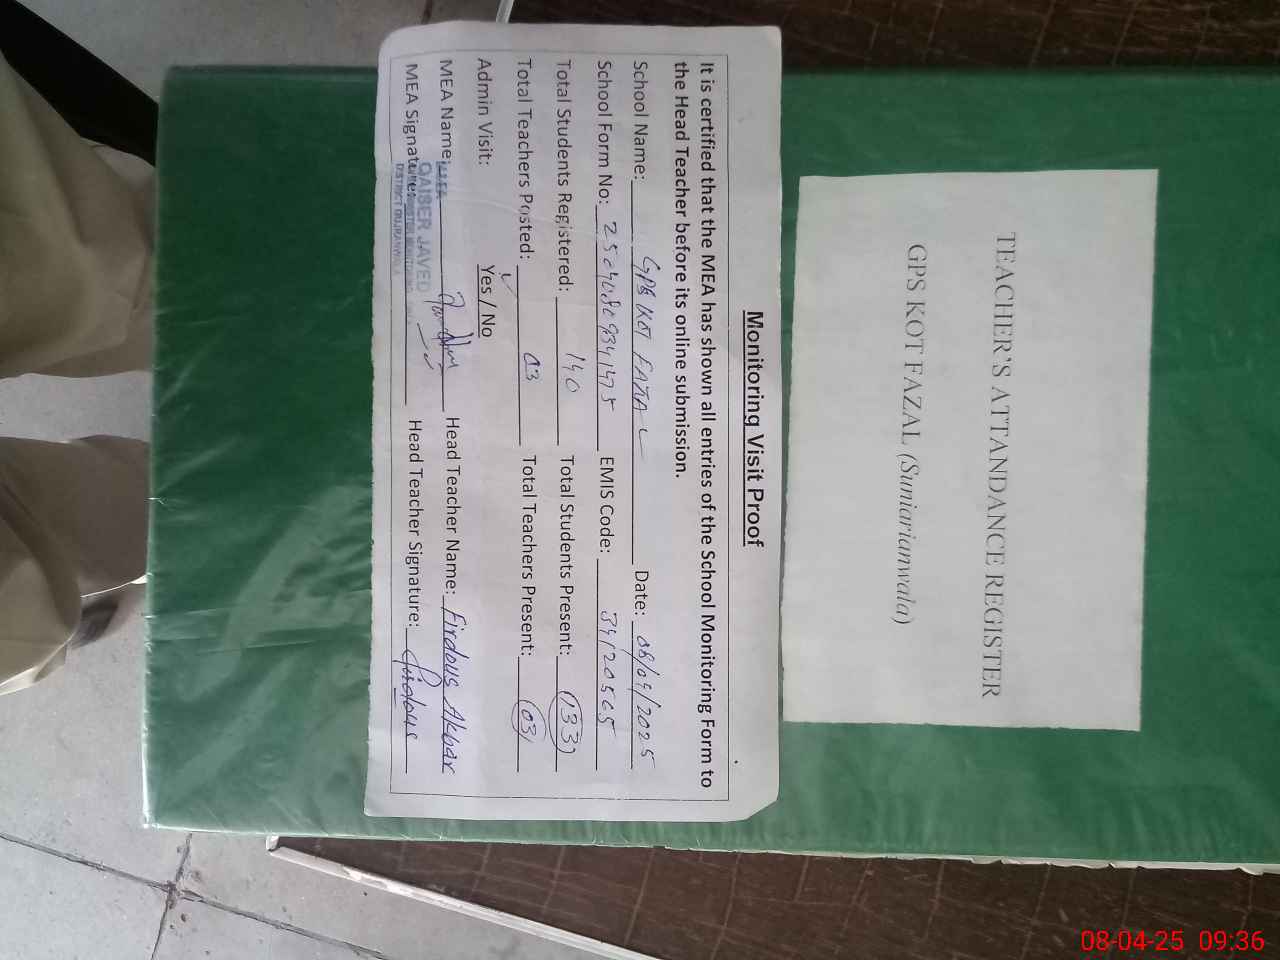 TEACHER'S ATTANDANCE REGISTER
GPS KOT FAZAL (Suniarianwala)
Monitoring Visit Proof
It is certified that the MEA has shown all entries of the School Monitoring Form to
the Head Teacher before its online submission.
School Name: GPS KOT FAZAL Date: 08/04/2025
School Form No: EMIS Code: 34120565
Total Students Registered: 140 Total Students Present: 133
Total Teachers Posted: 03 Total Teachers Present: 03
Admin Visit: Yes / No
MEA Name: Head Teacher Name: Firdous Akbar
MEA Signature: Head Teacher Signature: Firdous
MEA
QAISER JAVED
DISTRICT GUJRANWALA
08-04-25 09:36